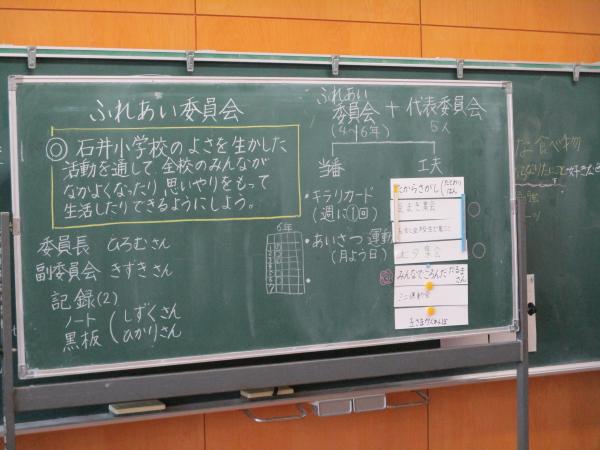 ふれあい委員会
◎石井小学校のよさを生かした
活動を通して、全校のみんなが
なかよくなったり、思いやりをもって
生活したりできるようにしよう。
委員長 ひろむさん
副委員会 きずきさん
記録(2)
ノート
黒板
しずくさん
ひかりさん
6年
ふれあい
委員会 + 代表委員会
(4~6年) 5人
当番
・キラリカード
(週に1回)
・あいさつ運動
(月よう日)
工夫
たからさがし(たてわりはん
豆まき集会
七夕集会
みんなでころんだ だるまさん
ミニ運動会
な食べ物